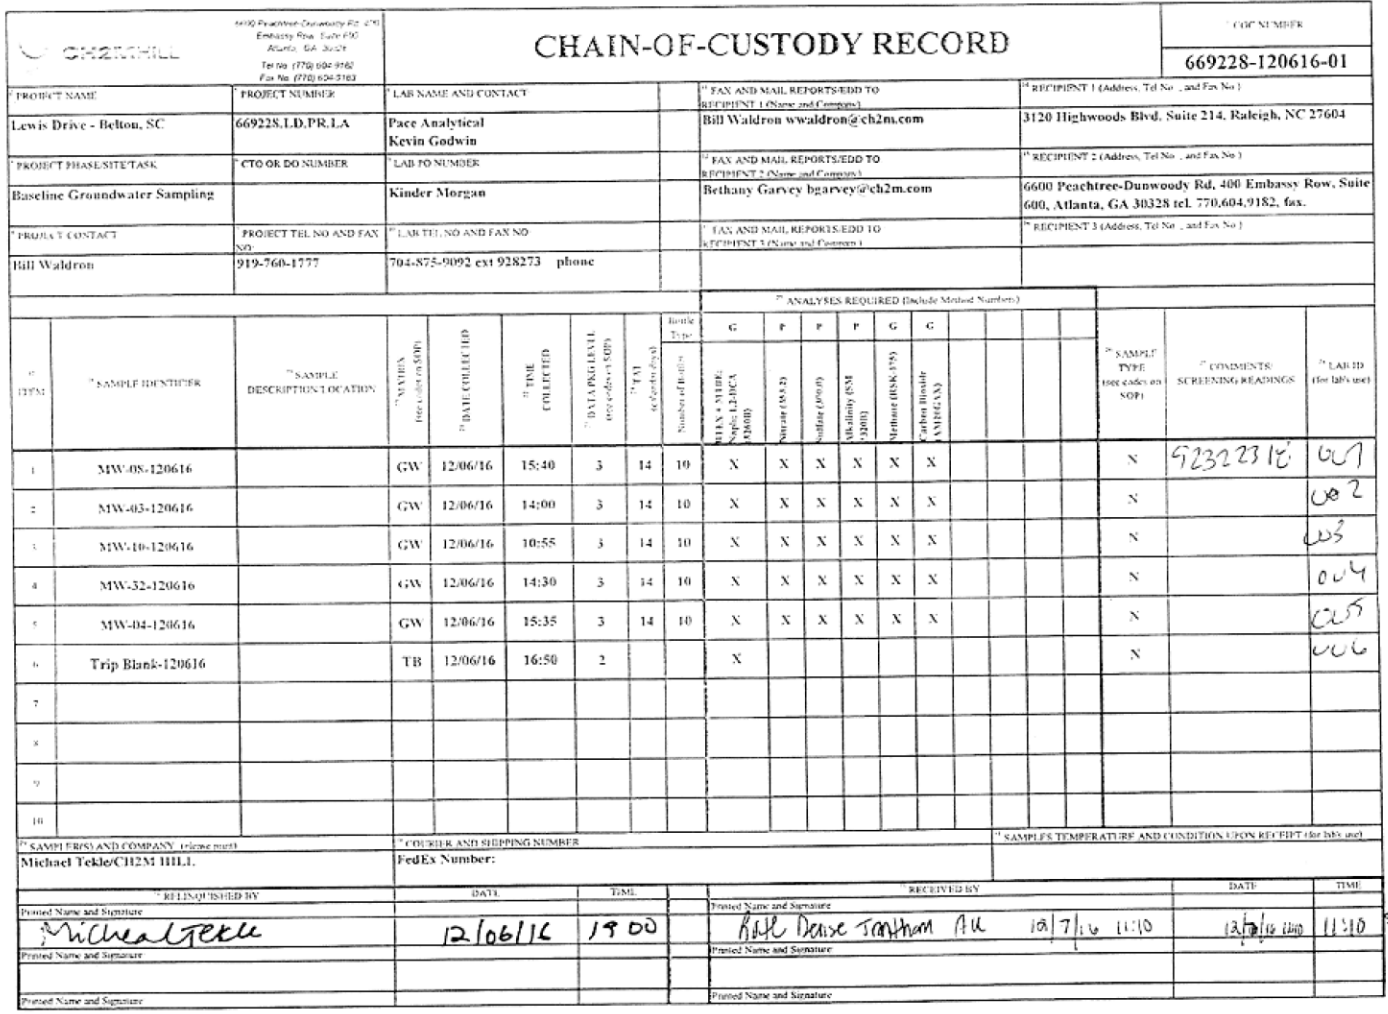 CH2MHILL
6600 Peachtree-Dunwoody Rd, 400
Embassy Row, Suite 600
Atlanta, GA 30328
Tel No. (770) 604-9182
Fax No. (770) 604-9183
CHAIN-OF-CUSTODY RECORD
COC NUMBER
669228-120616-01
PROJECT NAME
Lewis Drive - Belton, SC
PROJECT NUMBER
669228.LD.PR.LA
LAB NAME AND CONTACT
Pace Analytical
Kevin Godwin
FAX AND MAIL REPORTS/EDD TO
RECIPIENT 1 (Name and Company)
Bill Waldron wwaldron@ch2m.com
RECIPIENT 1 (Address, Tel No., and Fax No.)
3120 Highwoods Blvd. Suite 214, Raleigh, NC 27604
PROJECT PHASE/SITE/TASK
Baseline Groundwater Sampling
CTO OR DO NUMBER
LAB PO NUMBER
Kinder Morgan
FAX AND MAIL REPORTS/EDD TO
RECIPIENT 2 (Name and Company)
Bethany Garvey bgarvey@ch2m.com
RECIPIENT 2 (Address, Tel No., and Fax No.)
6600 Peachtree-Dunwoody Rd, 400 Embassy Row, Suite
600, Atlanta, GA 30328 tel. 770.604.9182, fax.
PROJECT CONTACT
Bill Waldron
PROJECT TEL NO AND FAX
NO.
919-760-1777
LAB TEL NO AND FAX NO
704-875-9092 ext 928273 phone
FAX AND MAIL REPORTS/EDD TO
RECIPIENT 3 (Name and Company)
RECIPIENT 3 (Address, Tel No., and Fax No.)
ANALYSES REQUIRED (Include Method Numbers)
ITEM
SAMPLE IDENTIFIER
SAMPLE
DESCRIPTION/LOCATION
MATRIX
(see codes on SOP)
DATE COLLECTED
TIME
COLLECTED
DATA PKG LEVEL
(see codes on SOP)
TAT
(calendar days)
Bottle
Type
Number of Bottles
G P P P G G
BTEX + MTBE,
Naph; 1,2-DCA
(8260B)
Nitrate (353.2)
Sulfate (300.0)
Alkalinity (SM
2320B)
Methane (RSK-175)
Carbon Dioxide
SAMPLE
TYPE
(see codes on
SOP)
COMMENTS/
SCREENING READINGS
LAB ID
(for lab's use)
1 MW-08-120616 GW 12/06/16 15:40 3 14 10 X X X X X X N 001
2 MW-03-120616 GW 12/06/16 14:00 3 14 10 X X X X X X N 002
3 MW-10-120616 GW 12/06/16 10:55 3 14 10 X X X X X X N 003
4 MW-32-120616 GW 12/06/16 14:30 3 14 10 X X X X X X N 004
5 MW-04-120616 GW 12/06/16 15:35 3 14 10 X X X X X X N 005
6 Trip Blank-120616 TB 12/06/16 16:50 2 X N 006
7
8
9
10
SAMPLER(S) AND COMPANY (please print)
Michael Tekle/CH2M HILL
COURIER AND SHIPPING NUMBER
FedEx Number:
SAMPLES TEMPERATURE AND CONDITION UPON RECEIPT (for lab's use)
RELINQUISHED BY DATE TIME RECEIVED BY DATE TIME
Printed Name and Signature
Printed Name and Signature
Micheal Tekle 12/06/16 1900
12/7/16 11:10 11:10
Printed Name and Signature
Printed Name and Signature
Printed Name and Signature
Printed Name and Signature